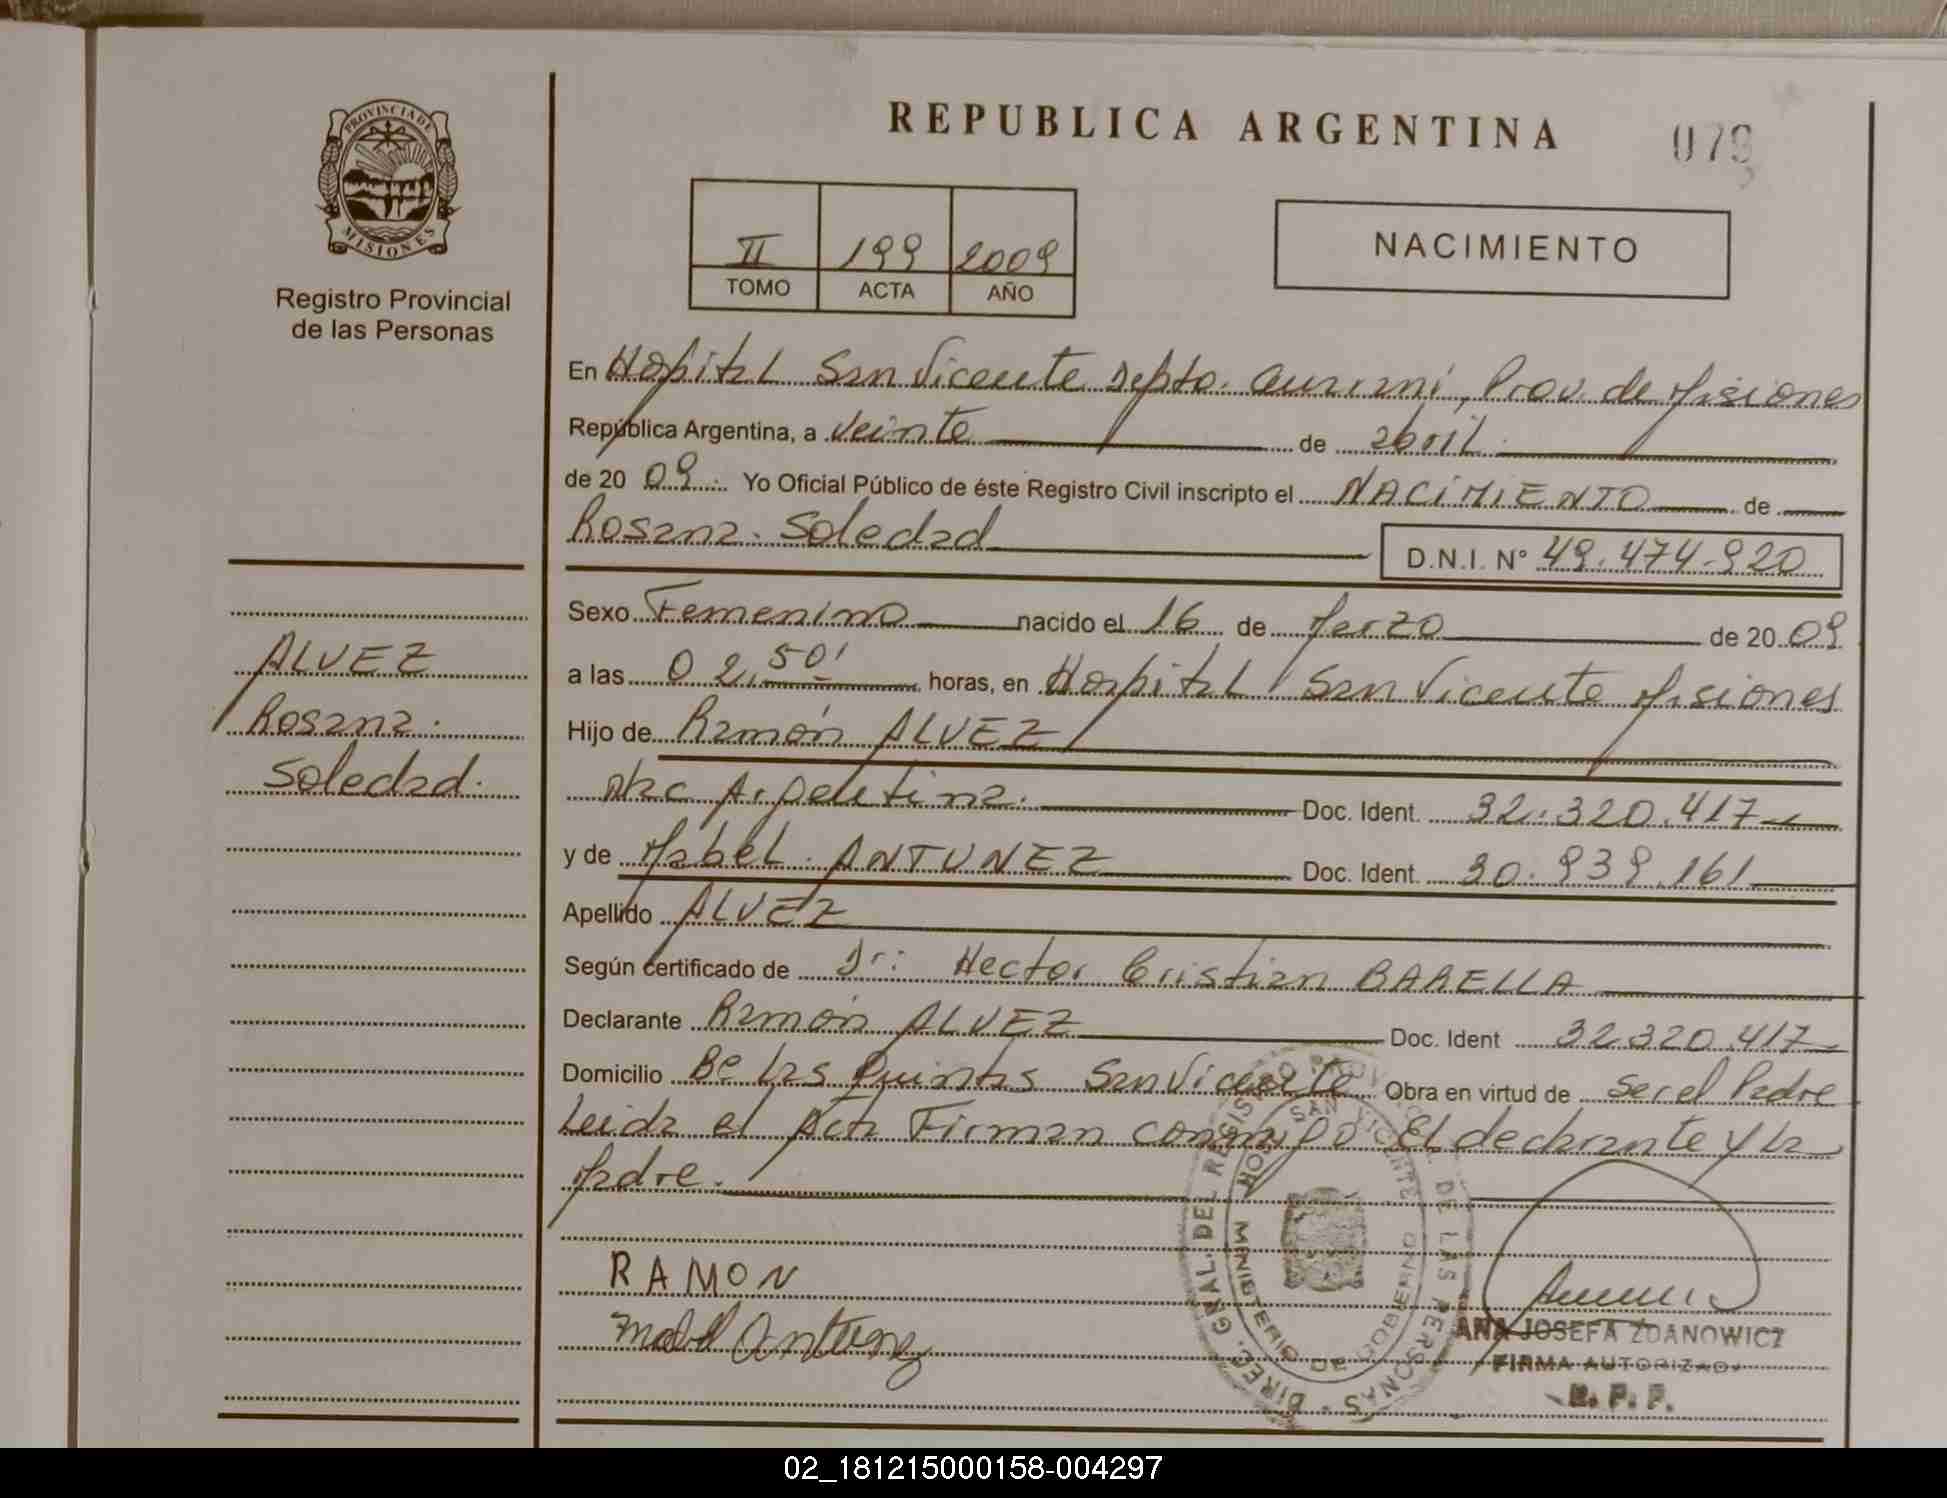 REPUBLICA ARGENTINA
079
PROVINCIA DE
MISIONES
Registro Provincial
de las Personas
II 199 2009
TOMO ACTA AÑO
NACIMIENTO
En Hospital San Vicente Depto. Guarani, Prov. de Misiones
República Argentina, a Veinte de abril
de 20 09. Yo Oficial Público de éste Registro Civil inscripto el NACIMIENTO de
Rosana Soledad D.N.I. N° 49.474.920
Sexo Femenino nacido el 16 de Marzo de 20 09
a las 02,50' horas, en Hospital San Vicente Misiones
Hijo de Ramón ALVEZ
Nac Argentina. Doc. Ident. 32.320.417
y de Mabel ANTUNEZ Doc. Ident. 30.939.161
Apellido ALVEZ
Según certificado de Dr: Hector Cristian BARELLA
Declarante Ramón ALVEZ Doc. Ident 32.320.417
Domicilio Bº Las Quintas San Vicente Obra en virtud de ser el Padre
Leida el Acta Firman conmigo El declarante y la
Madre.
ALVEZ
Rosana
Soledad.
RAMON
Mabel Antunez
DIREC. GRAL. DEL REGISTRO PROV. DE LAS PERSONAS
HOSP. SAN VICENTE
MINISTERIO DE GOBIERNO
ANA JOSEFA ZDANOWICZ
FIRMA AUTORIZADA
R. P. P.
02_181215000158-004297